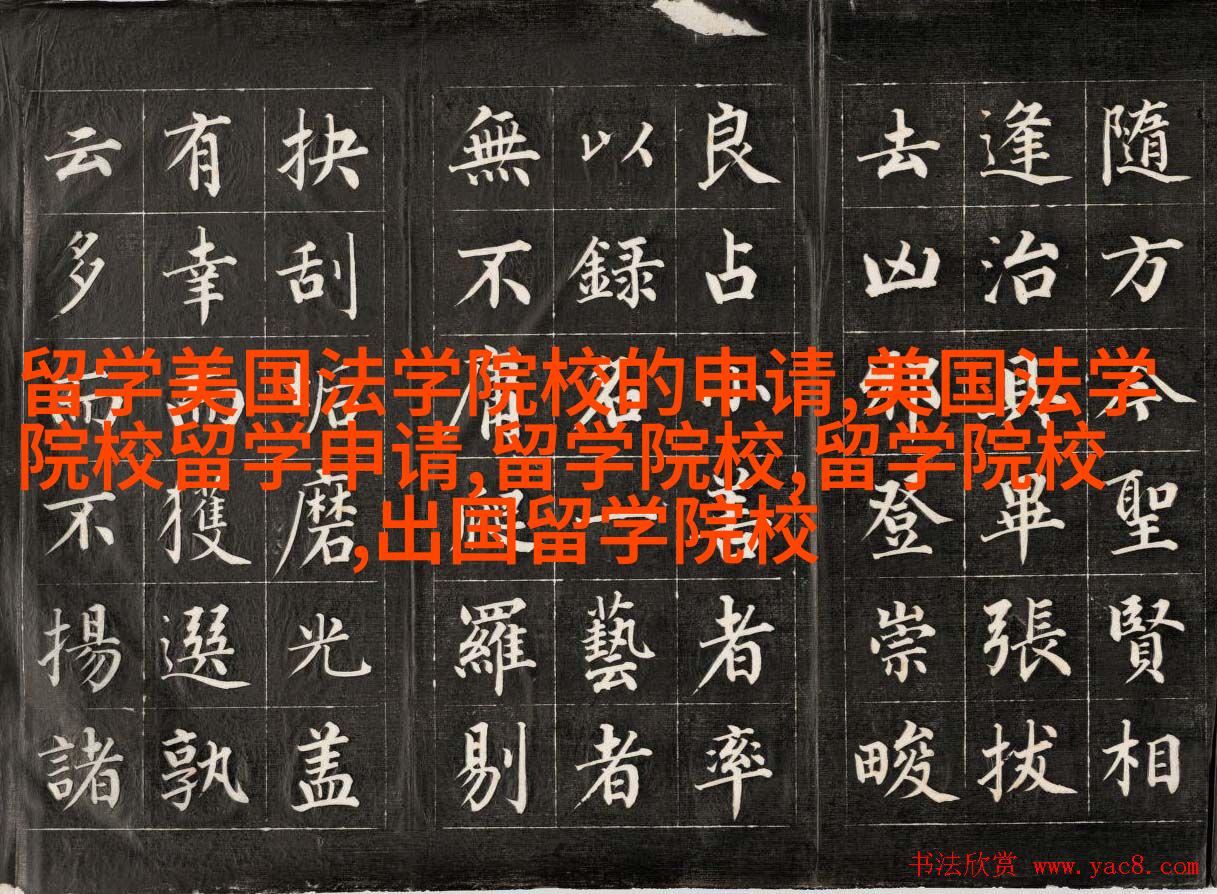 隨方今聖賢相
逢治具畢張拔
去凶邪登崇畯
良占小善者率
以録名一藝者
無不庸爬羅剔
抉刮垢磨光盖
有幸而獲選孰
云多而不揚諸
留学美国法学院校的申请,美国法学
院校留学申请,留学院校,留学院校
,出国留学院校
书法欣赏 www.yac8.com